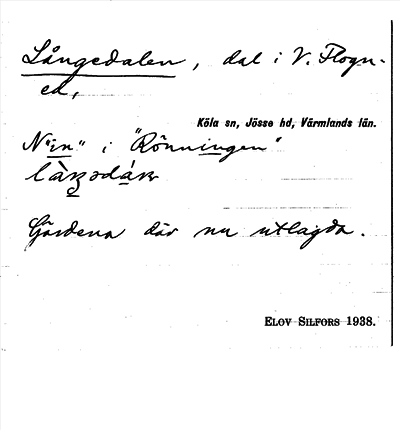 Långedalen, dal i V. Flogn-
ed,
Köla sn, Jösse hd, Värmlands län.
N"in" i "Rönningen"
Gårdena där nu utlagda.
ELOV SILFORS 1938.